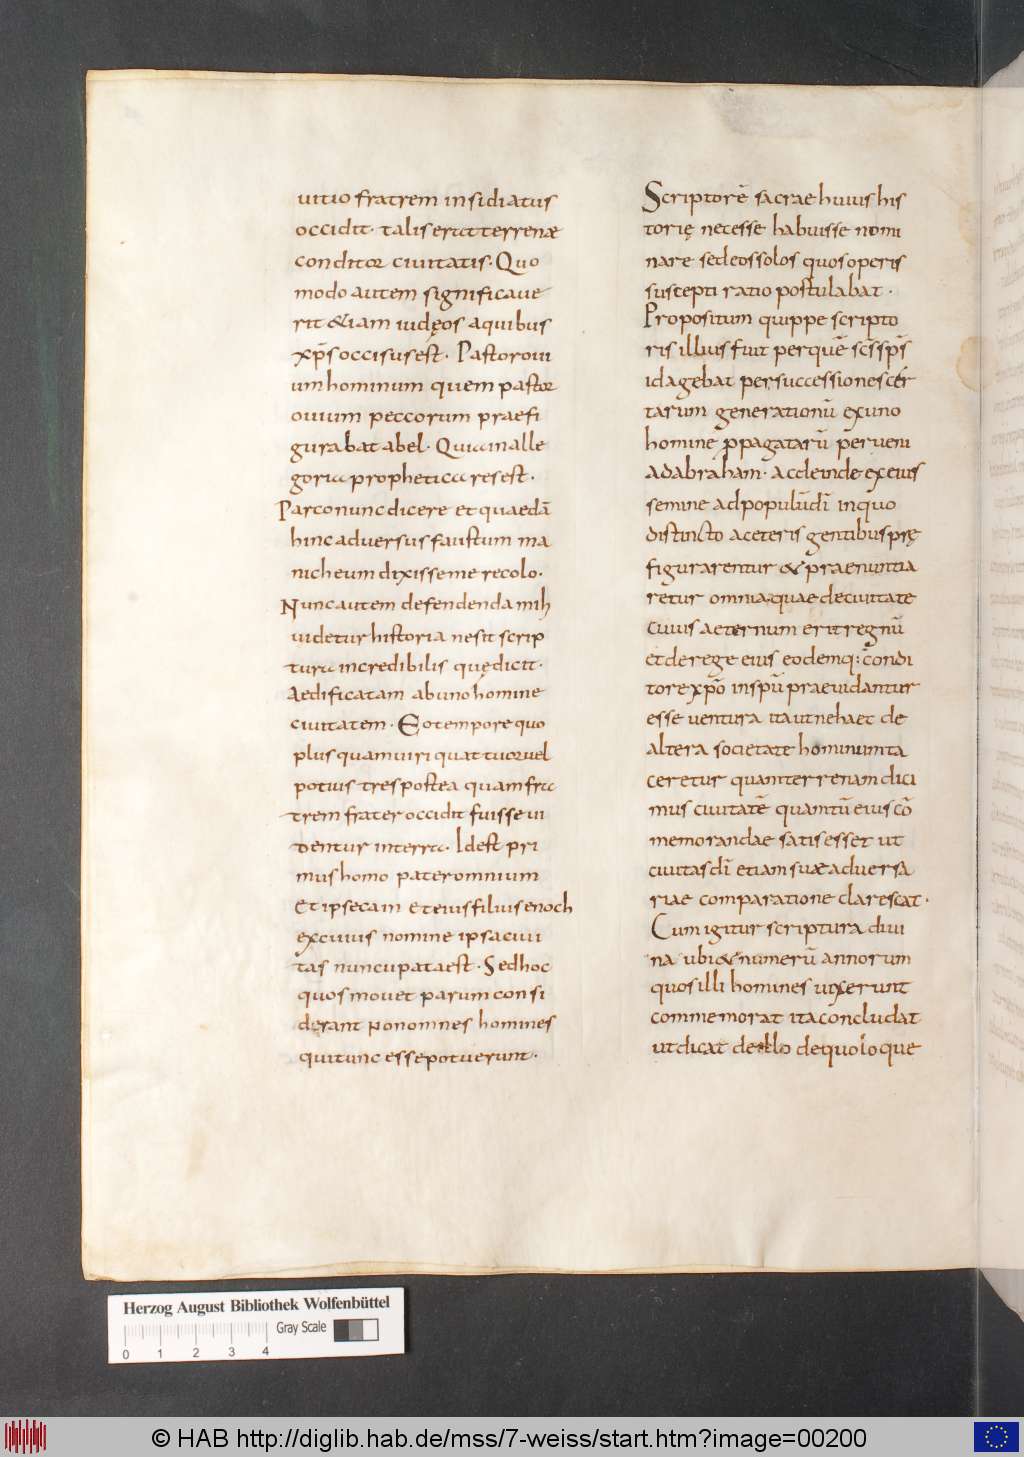 uitio fratrem insidiatus
occidit· talis erat terrenæ
conditor ciuitatis· Quo
modo autem significaue
rit &iam iudęos a quibus
xp̄s occisus est· Pastor oui
um hominum quem pastor
ouium peccorum praefi
gurabat abel· Quia in alle
goria prophetica res est·
Parco nunc dicere et quaedā
hinc aduersus faustum ma
nicheum dixisse me recolo·
Nunc autem defendenda mih
uidetur historia ne sit scrip
tura incredibilis quę dicit·
Aedificatam ab uno homine
ciuitatem· Eo tempore quo
plus quam uiri quattuor uel
potius tres postea quam fra
trem frater occidit fuisse ui
dentur in terra· Id est pri
mus homo pater omnium
Et ipse cam et eius filius enoch
ex cuius nomine ipsa ciui
tas nuncupata est· Sed hoc
quos mouet parum consi
derant non omnes homines
qui tunc esse potuerunt·
Scriptorē sacrae huius his
torię necesse habuisse nomi
nare sed eos solos quos operis
suscepti ratio postulabat·
Propositum quippe scripto
ris illius fuit per quē scs sp̄s
id agebat per successiones cer
tarum generationū ex uno
homine ̄ppagatarū peruenire
ad abraham· ac deinde ex eius
semine ad populū dī in quo
distincto a ceteris gentibus prę
figurarentur & praenuntia
retur omnia quae de ciuitate
cuius aeternum erit regnū
et de rege eius eodemq: condi
tore xp̄o in sp̄u praeuidantur
esse uentura ita ut ne haec de
altera societate hominum ta
ceretur quam terrenam dici
mus ciuitatē quantū eius cō
memorandae satis esset ut
ciuitas dī etiam suæ aduersa
riae comparatione clarescat·
Cum igitur scriptura diui
na ubi & numerū annorum
quos illi homines uixerunt
commemorat ita concludat
ut dicat de illo de quo loque
Herzog August Bibliothek Wolfenbüttel
Gray Scale
0 1 2 3 4
© HAB http://diglib.hab.de/mss/7-weiss/start.htm?image=00200